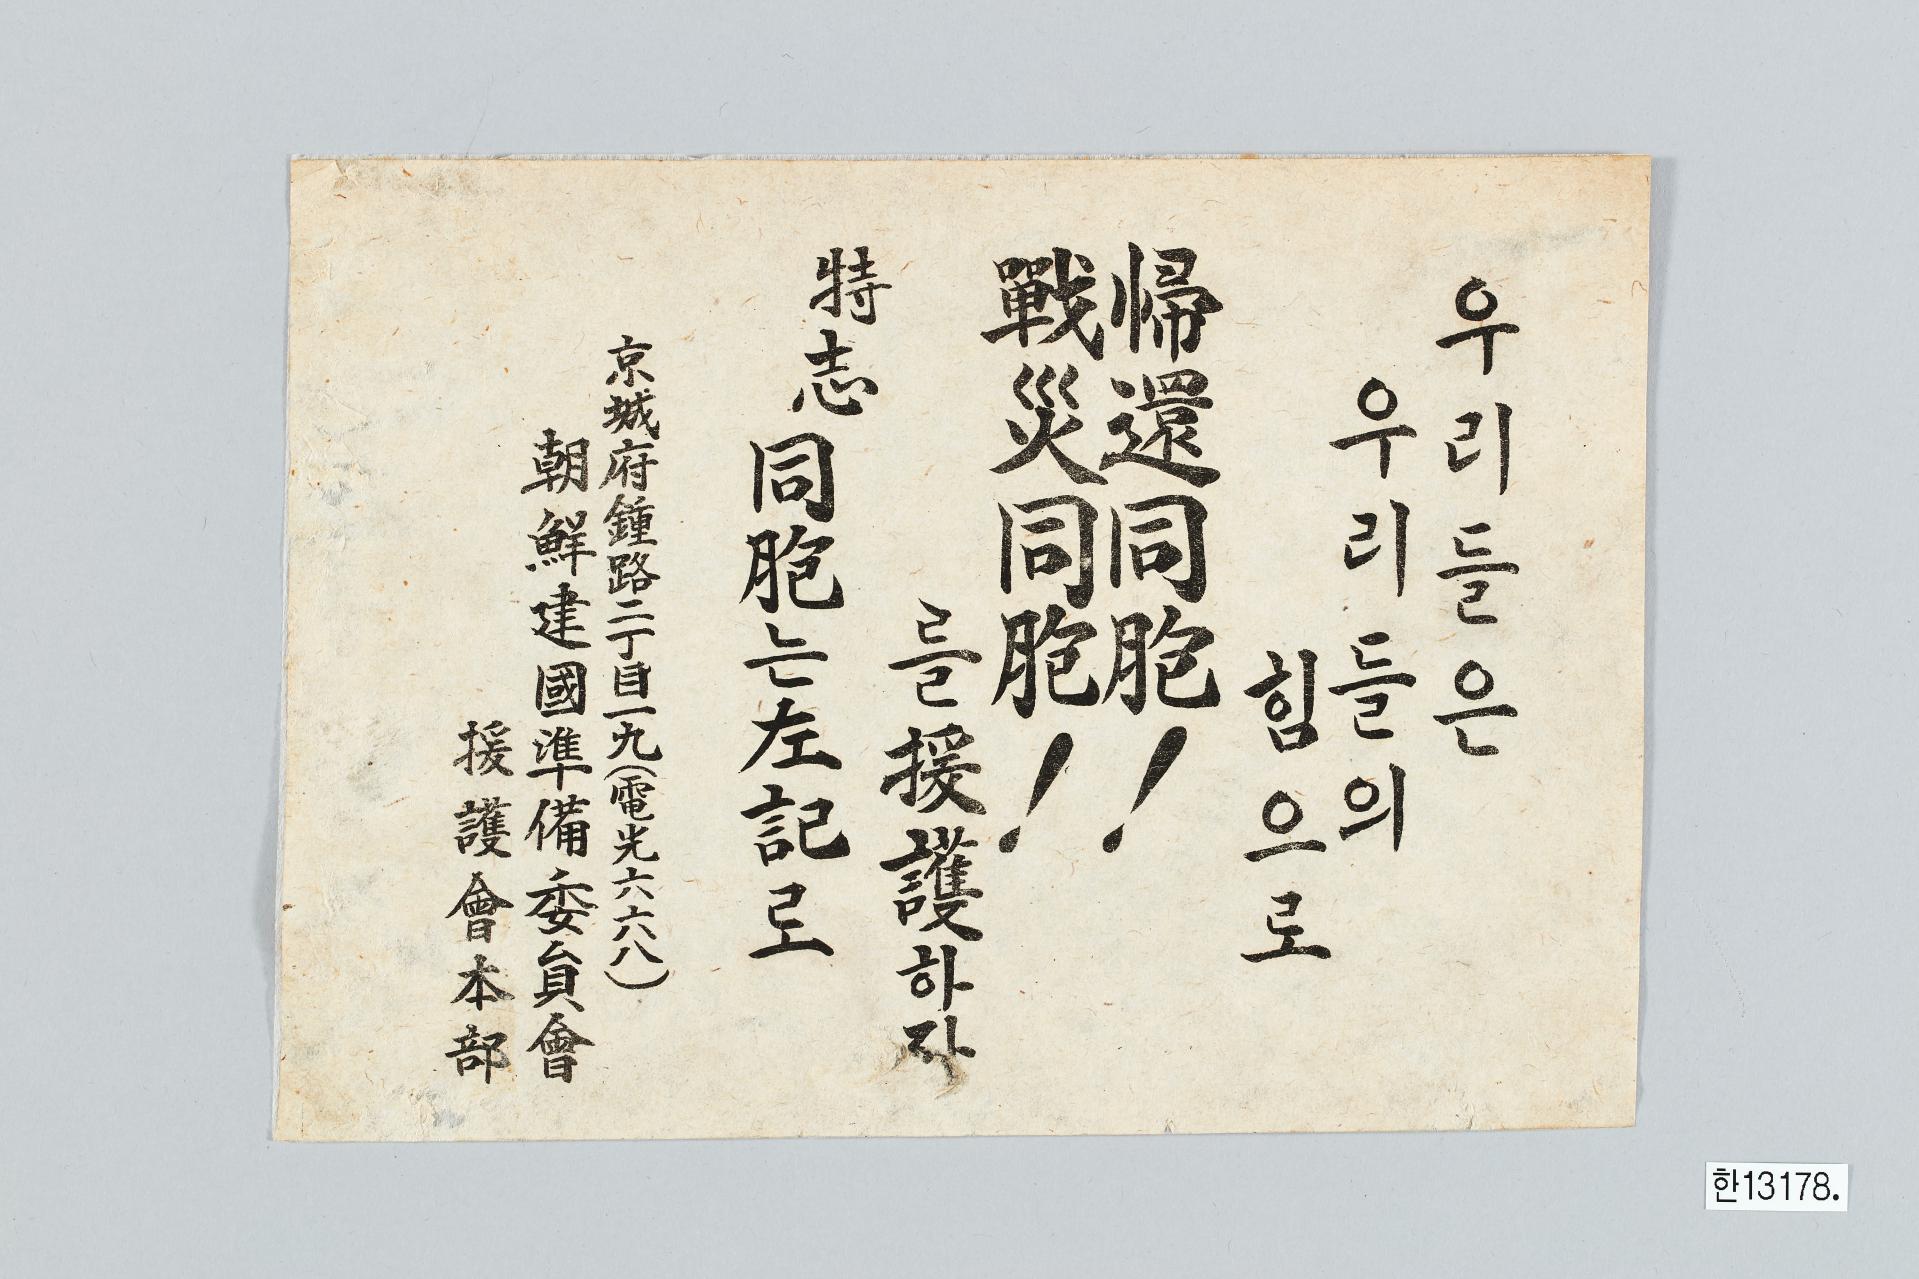 우리들은
우리들의
힘으로
帰還同胞!
戰災同胞!
를援護하자
特志
同胞는左記로
京城府鍾路二丁目一九(電光六六八)
朝鮮建國準備委員會
援護會本部
한13178.